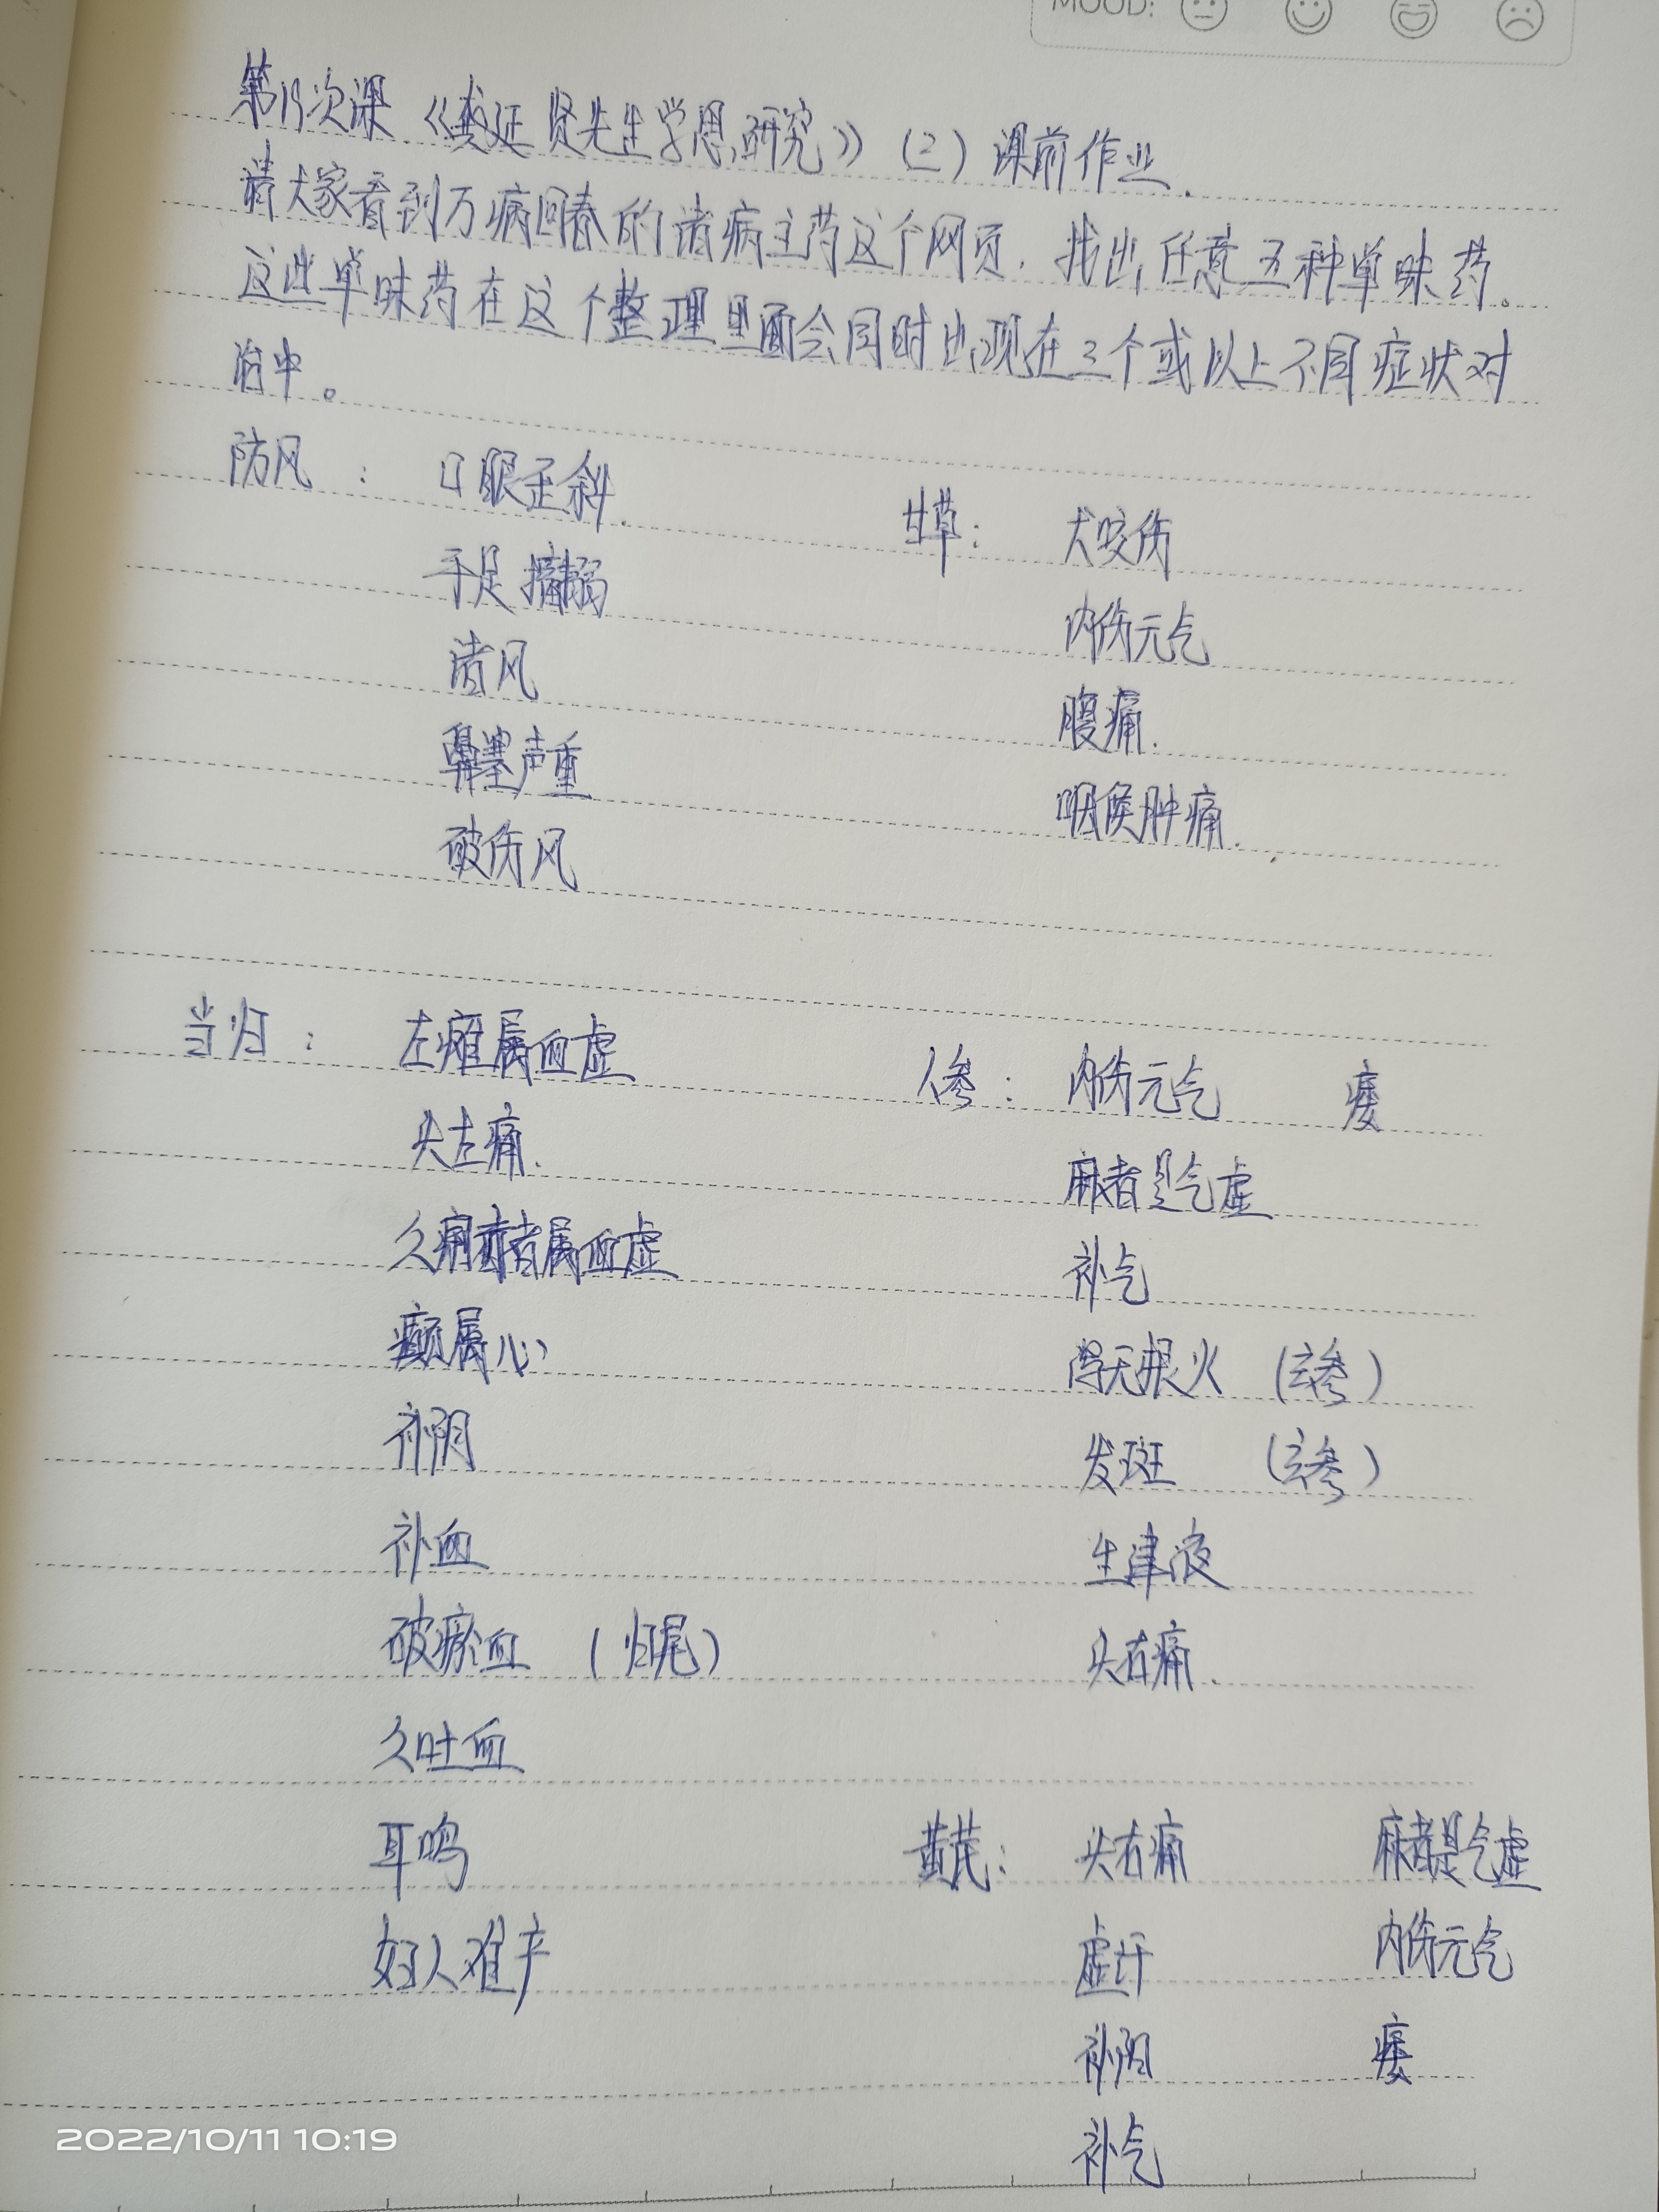 MOOD:
第19次课《龚廷贤先生学思研究》（2）课前作业.
请大家看到万病回春的诸病主药这个网页，找出任意五种单味药。
这些单味药在这个整理里面会同时出现在三个或以上不同症状对
治中。
防风： 口眼歪斜.
手足搐搦
诸风
鼻塞声重
破伤风
甘草： 犬咬伤
内伤元气
腹痛.
咽喉肿痛.
当归： 左瘫属血虚
头左痛.
久痢赤者属血虚
癫属心
补阴
补血
破瘀血 （归尾）
久吐血
耳鸣
妇人难产
人参： 内伤元气 痿
麻者是气虚
补气
浮无根火 （玄参）
发斑 （玄参）
生津液
头右痛.
黄芪： 头右痛 麻者是气虚
虚汗 内伤元气
补阳 痿
补气
2022/10/11 10:19